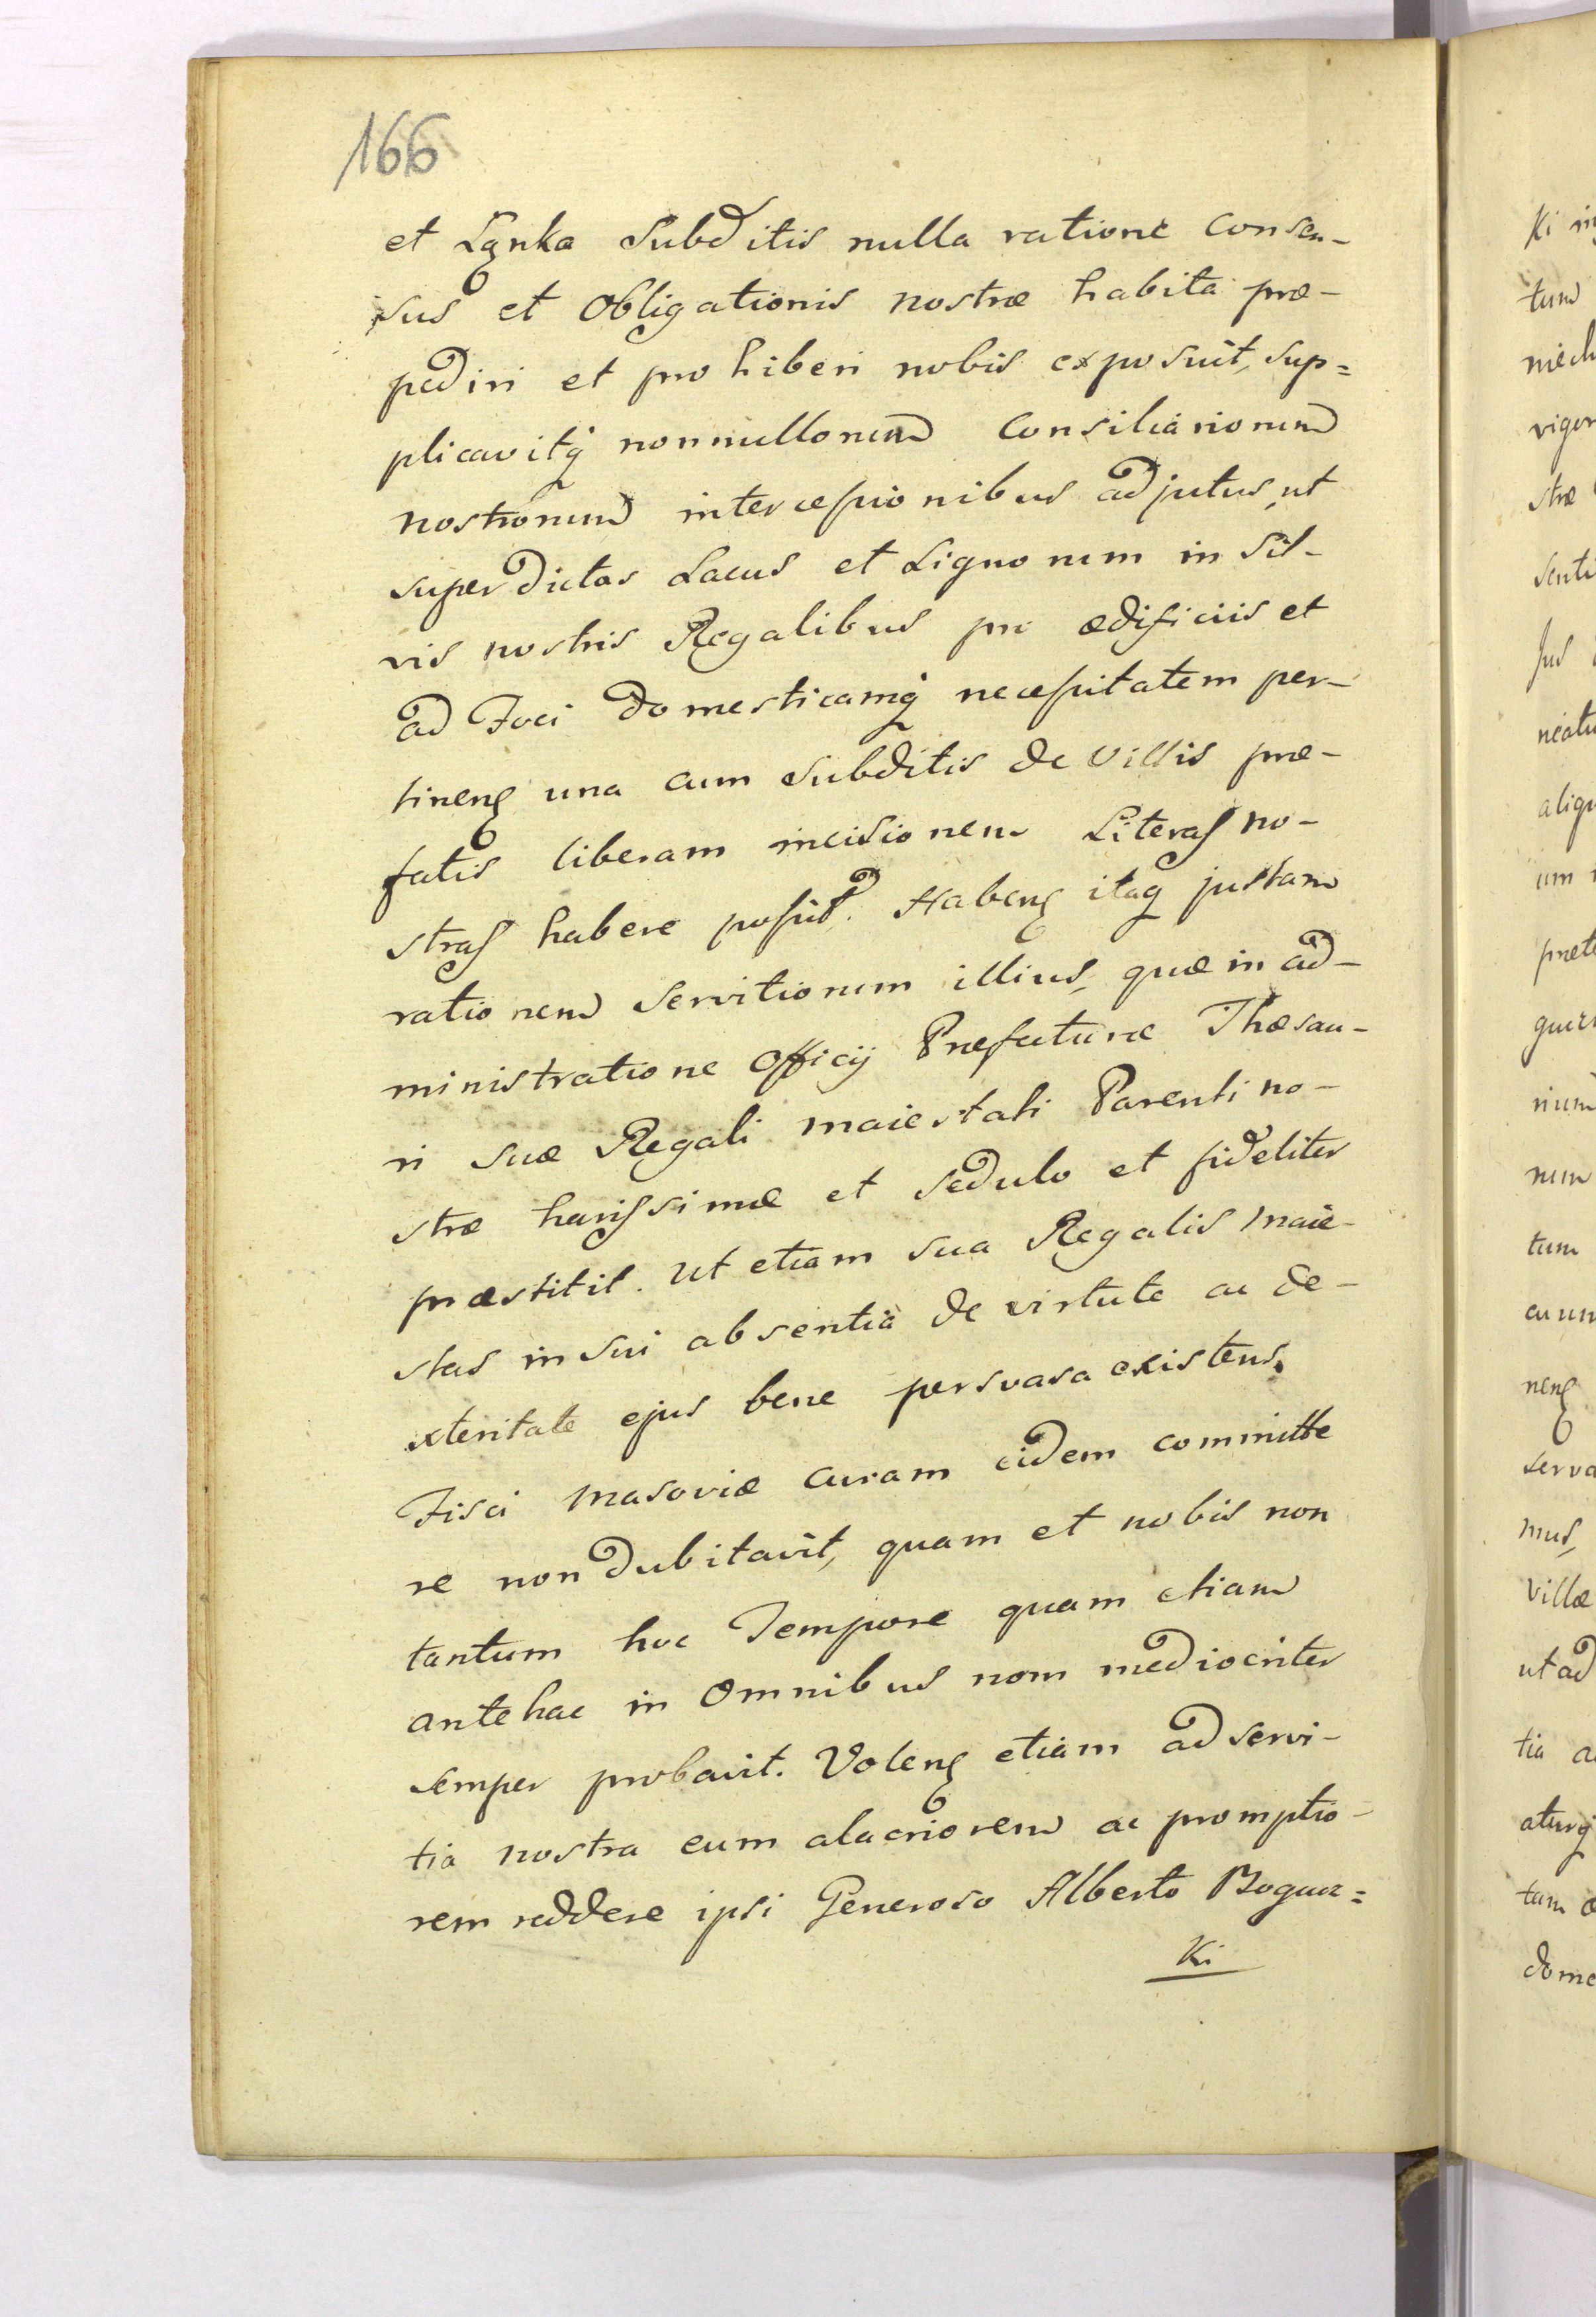 166
et Lynka Subditis nulla ratione consen-
sus et Obligationis nostræ habita præ-
pediri et prohiberi nobis exposuit, sup=
plicavitq nonnullorum Consiliariorum
nostrorum intercessionibus adjutus, ut
super dictos Lacus et Lignorum in Sil-
vis nostris Regalibus pro ædificiis et
ad Foci domesticamq necessitatem per-
tinens una cum Subditis de Villis præ-
fatis liberam incisionem Literas no-
stras habere possit. Habens itaq justam
rationem Servitiorum illius, quæ in ad-
ministratione Officij Præfecturæ Thesau-
ri suæ Regali Maiestati Parenti no-
stræharissimæ et sedulo et fideliter
præstitit. Ut etiam sua Regalis Maie-
stas in sui absentia de virtute ac de-
xteritate ejus bene persvasa existens
Fisci Masoviæ curam eidem committe
re non dubitavit, quam et nobis non
tantum hoc Tempore quam etiam
antehac in Omnibus nom mediocriter
semper probavit. Volens etiam ad servi-
tia nostra eum alacriorem ac promptio-
rem reddere ipsi Generoso Alberto Boguc=
ki
ki
tum
vigor
stræ
senti
Jus
neatu
aliqu
um
præte
num
tum
nens
serva
mus,
Villæ
ut ad
tia a
aturq
tam
dome